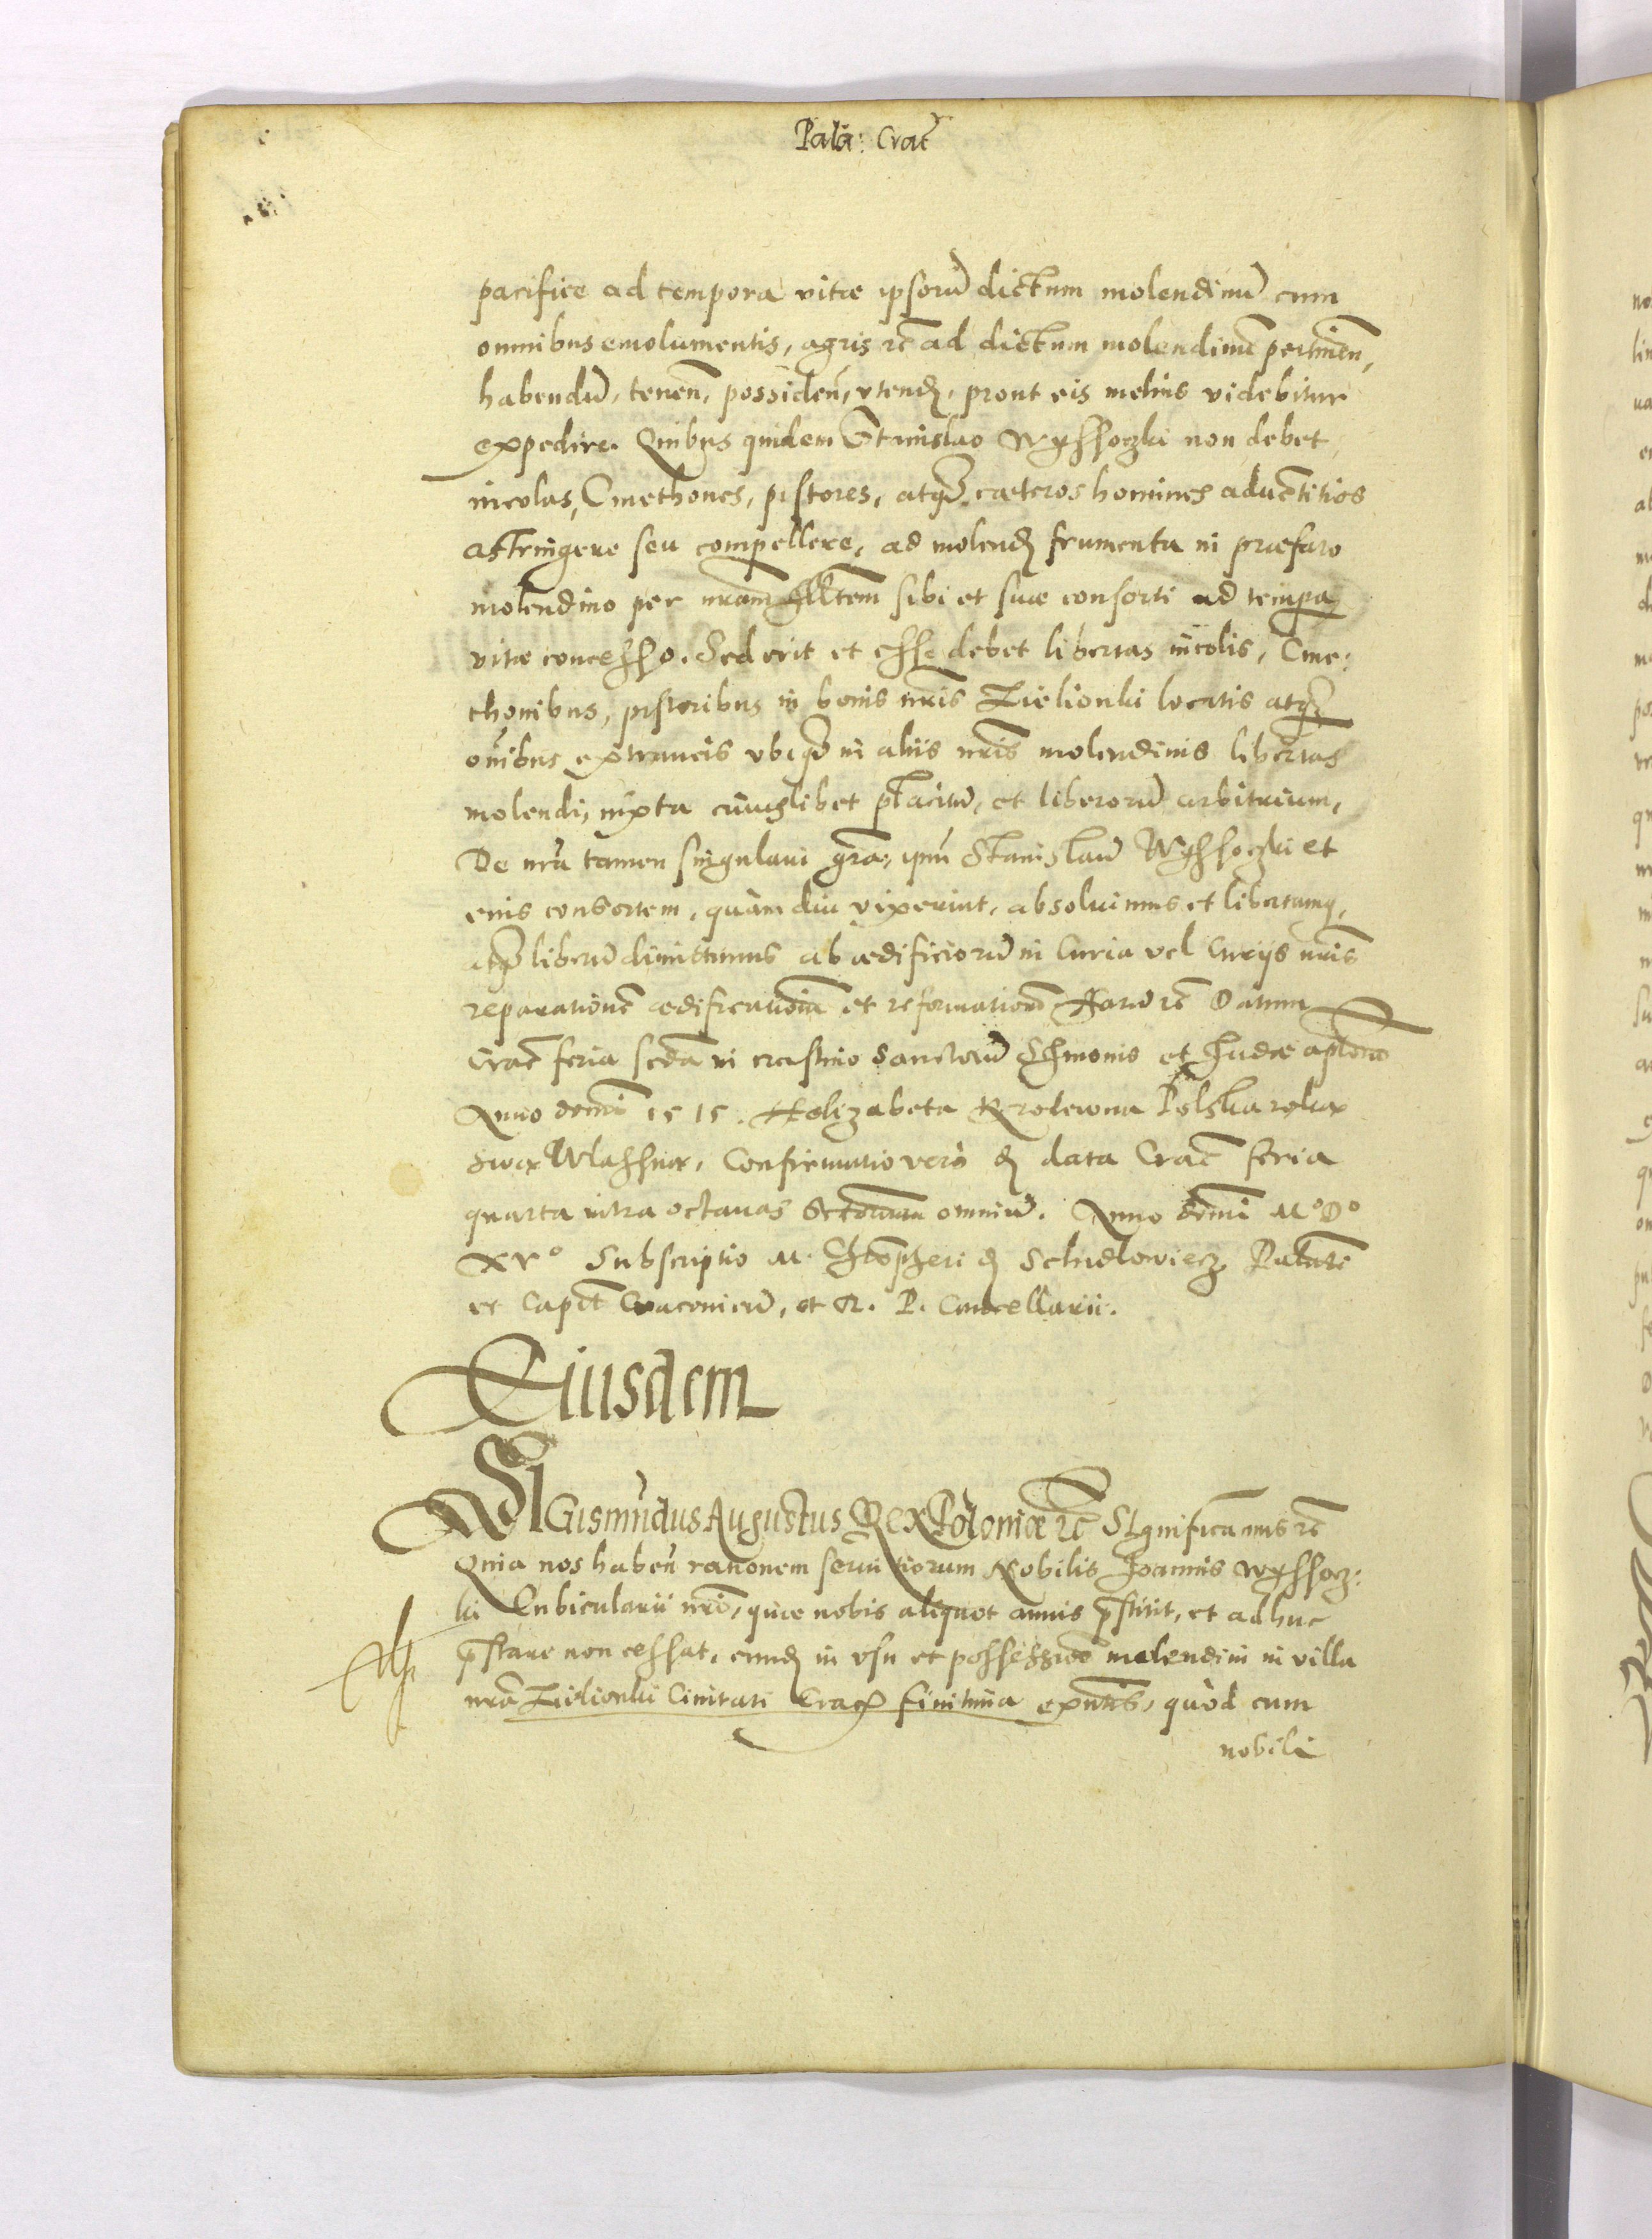 Pala: Crac
pacifice ad tempora vitae ipsorū dictum molendinū cum
omnibus emolumentis, agris rc ad dictum molendinū pertinen,
habendū, tenen, possiden, vtend, prout eis melius videbitur
expedire. Quibus quidem Stanislao Wyssoczki non debet
incolas, Cmethones, pistores, atq caeteros homines aduentitios
astringere seu compellere, ad molend frumenta in praefato
molendino per nram sibi et suae consorti ad tempa
vitae concesso. Sed erit et esse debet libertas incolis, Cme:
thonibus, pistoribus in bonis nris Zielionki locatis atq
oibus extraneis vbiq in aliis nris molendinis libertas
molendi, iuxta cuiuslibet placitū, et liberorū arbitrium,
De nra tamen singulari gra, ipm Stanislaū Wyssoczki et
eius consortem, quàm diu vixerint, absoluimus et libertamq,
atq liberū dimittimus ab aedificiorū in Curia vel Curijs nris
reparatione aedificationi et reformatione Harū rc Datum
Crac feria scda in crastino Sanctorū Simonis et Judae aplorū
Anno domi 1515. Helizabeta Krolewna Polska
Wlassna, Confirmatio verò d data Crac feria
quarta intra octauas Sctorum omniū. Anno domi M° D°
XV° Subscriptio M. d Schidlowiecz, Palati
et Capit Cracovien, et R. P. Cancellarii.
Eiusdem
SIGismūdus Augustus Rex Poloniae rc Significamus rc
Quia nos haben rationem seruitiorum Nobilis Joannis Wyssocz:
ki Cubicularii nri, quae nobis aliquot annis pstitit, et adhuc
pstare non cessat, eund in vsu et possessioe molendini in villa
nra Zielionki Ciuitati Crac finitima exntis, quod cum
nobili